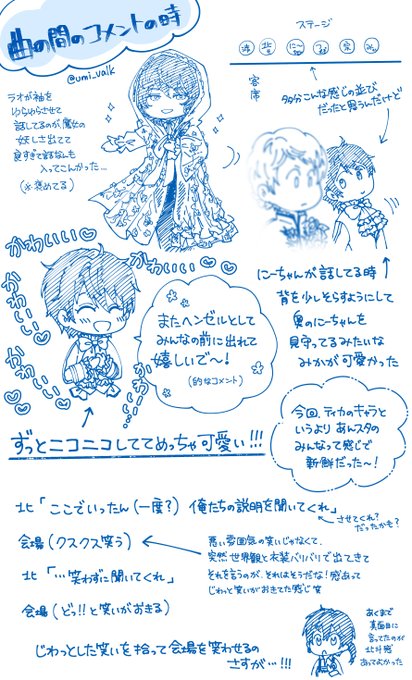 曲の間のコメントの時
@umi_vaik
ラオが袖を
ゆらゆらさせて
話してるのが魔女の
妖しさ出てて
良すぎて話なんも
入ってこんかった…
(※褒めてる)
ステージ
北
に〜
みか
客席
多分こんな感じの並び
だったと思うんだけど
にーちゃんが話してる時
背を少しそらすようにして
奥のにーちゃんを
見守ってるみたいな
みかが可愛かった
かわいい♡
かわいい♡
かわいい
かわいい
かわいい
かわいい…
またヘンゼルとして
みんなの前に出れて
嬉しいで〜!
(的なコメント)
ずっとニコニコしててめっちゃ可愛い!!!
今回、ティカのキャラと
いうよりあんスタの
みんなって感じで
新鮮だった〜!
北「ここでいったん(一度?)俺たちの説明を聞いてくれ」
させてくれ?
だったかも?
会場(クスクス笑う)
悪い雰囲気の笑いじゃなくて、
突然世界観と衣装バリバリで出てきて
それを言うのが、それはそうだな!感あって
じわっと笑いがおきてた感じ笑
北「…笑わずに聞いてくれ」
会場(どっ!!と笑いがおきる)
じわっとした笑いを拾って会場を笑わせるの
さすが…!!!
あくまで
真面目に
言ってたのが
北斗感
あってよかった